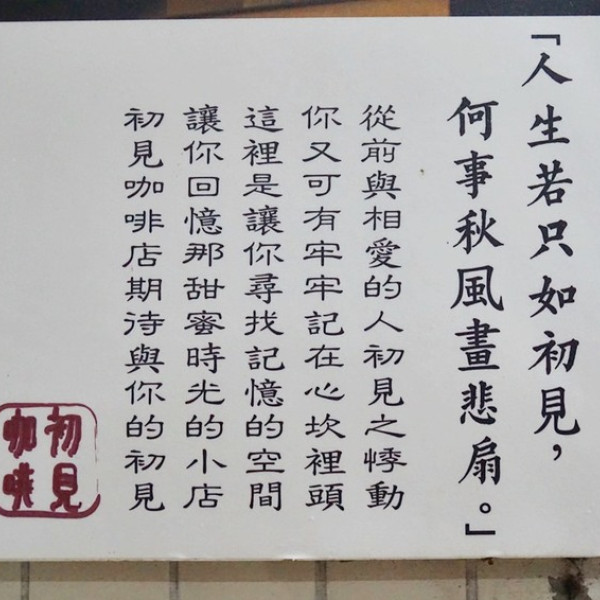 「人生若只如初見，
何事秋風畫悲扇。」
從前與相愛的人初見之悸動
你又可有牢牢記在心坎裡頭
這裡是讓你尋找記憶的空間
讓你回憶那甜蜜時光的小店
初見咖啡店期待與你的初見
初見
咖啡